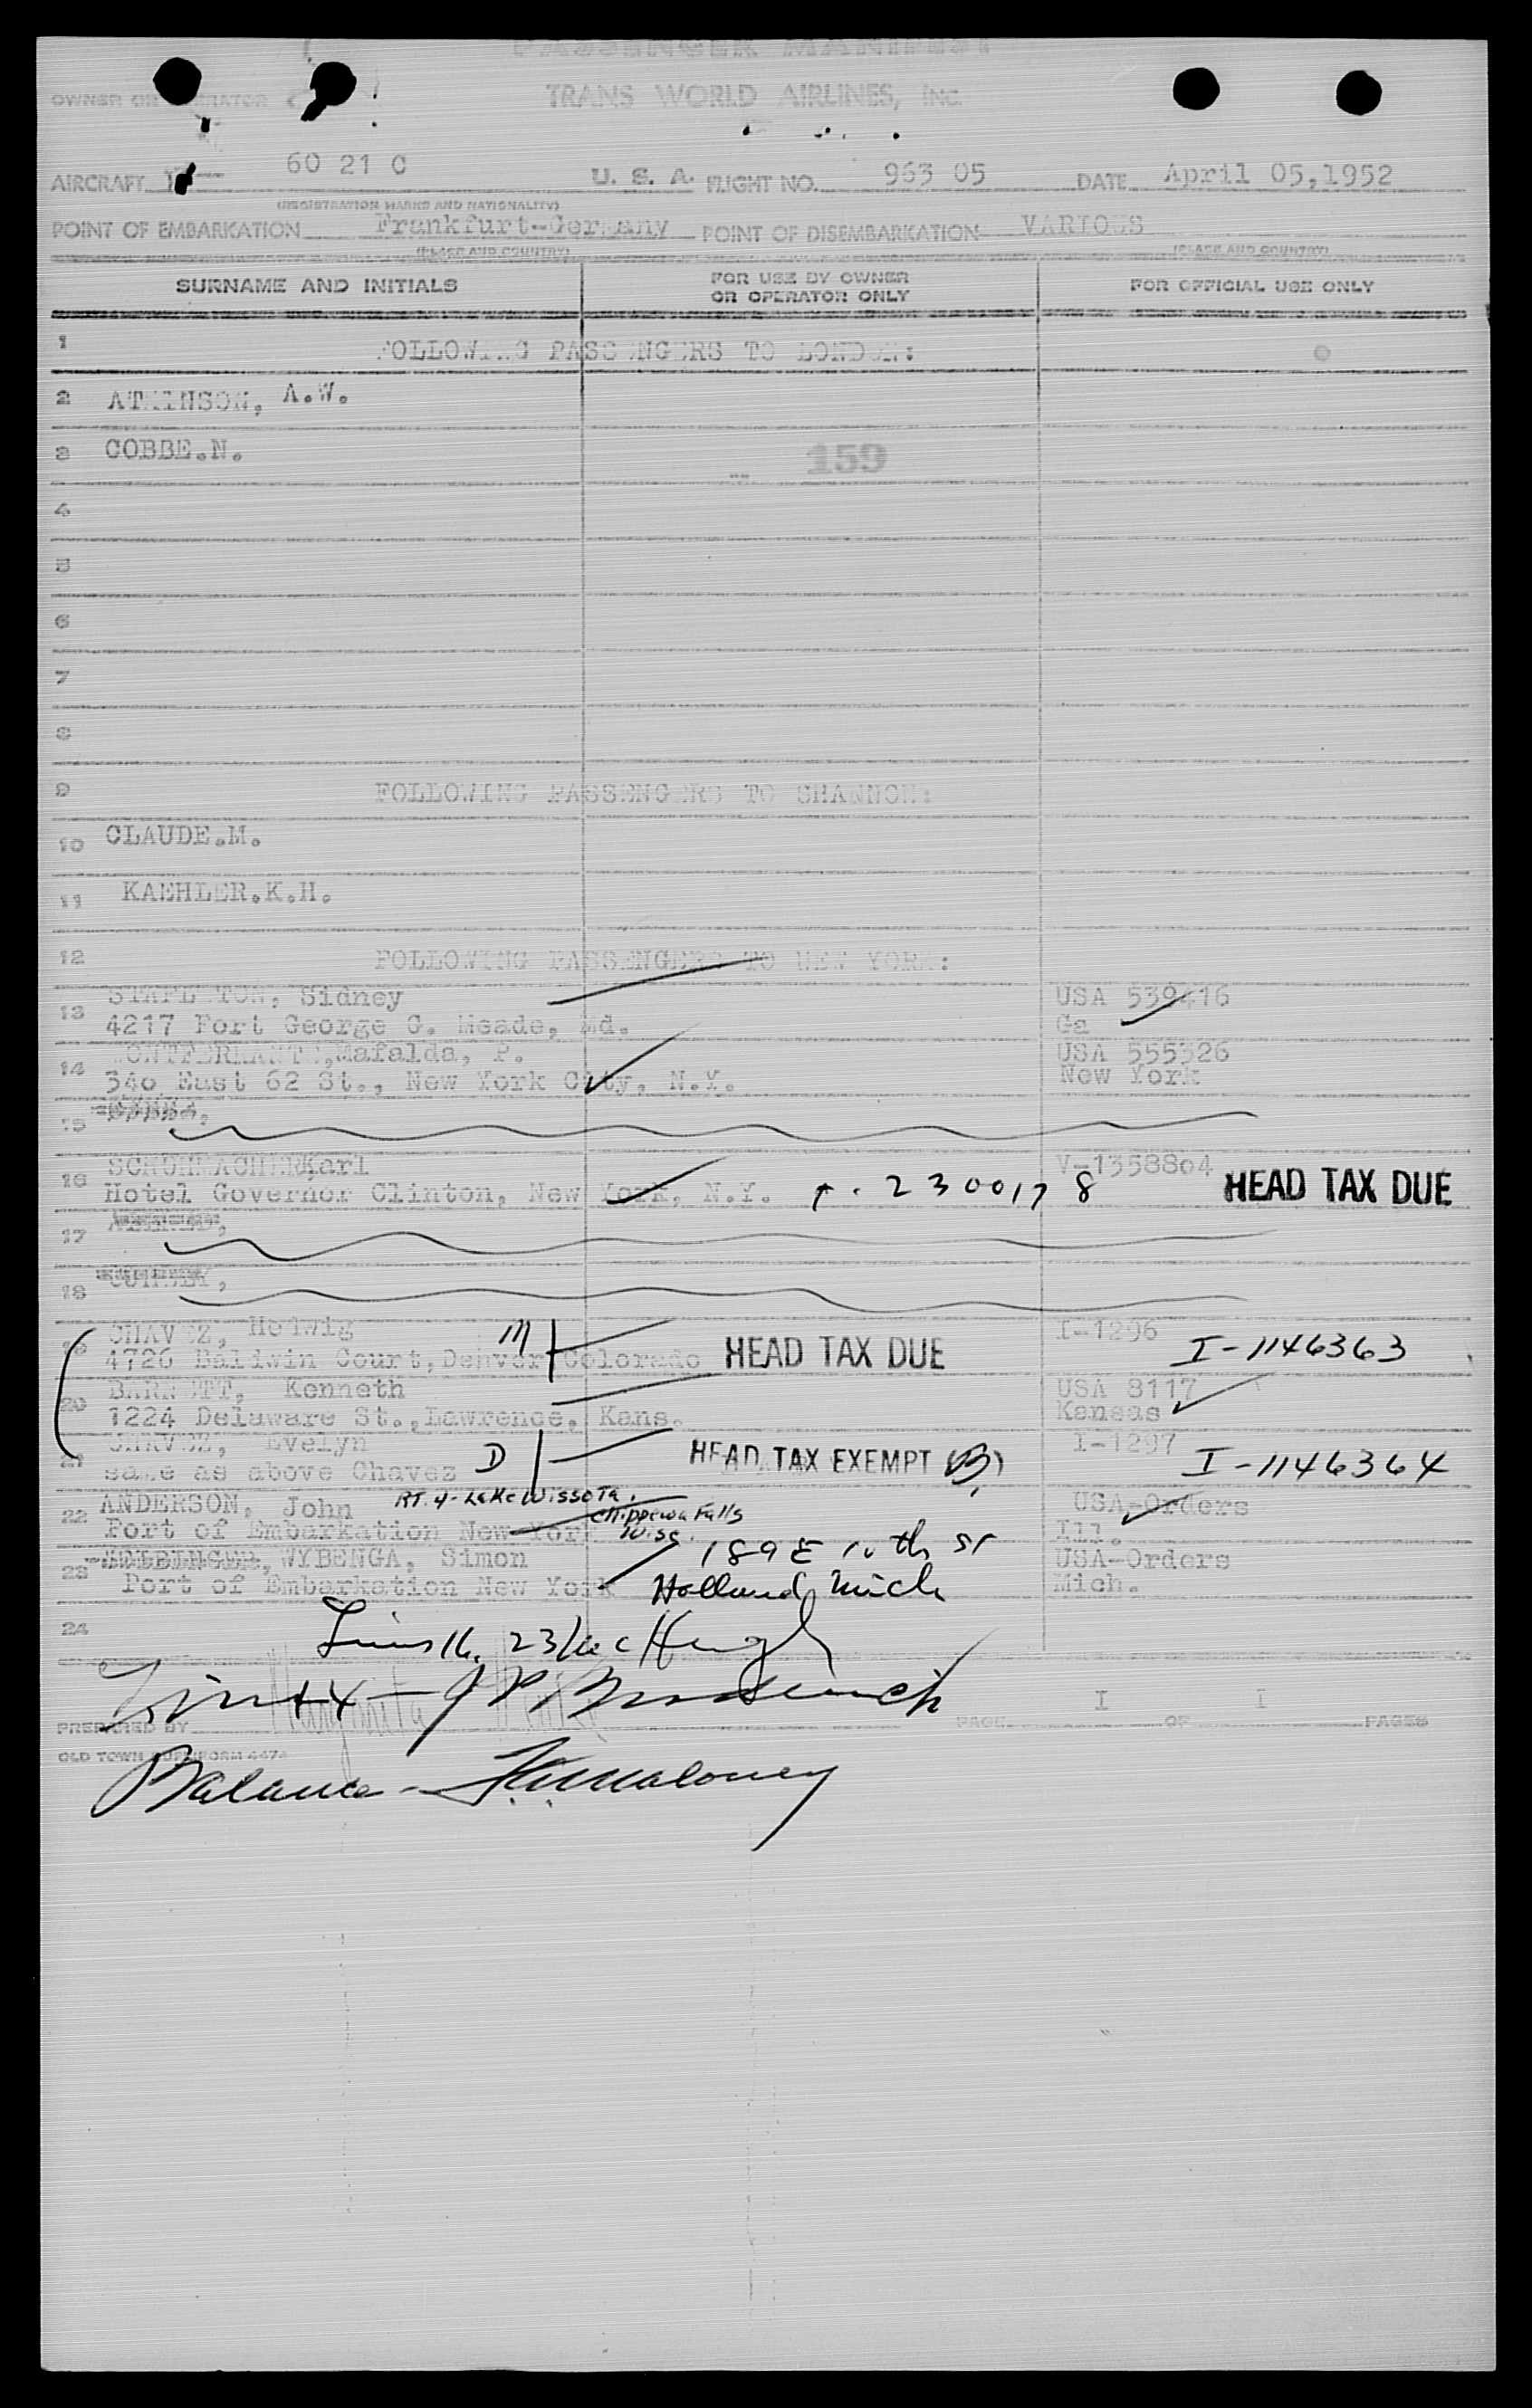 PASSENGER MANIFEST
OWNER OR OPERATOR
TRANS WORLD AIRLINES, INC.
AIRCRAFT 60 21 C U. S. A. FLIGHT NO. 963 05 DATE April 05,1952
(REGISTRATION MARKS AND NATIONALITY)
POINT OF EMBARKATION Frankfurt-Germany POINT OF DISEMBARKATION VARIOUS
(PLACE AND COUNTRY) (PLACE AND COUNTRY)
SURNAME AND INITIALS FOR USE BY OWNER OR OPERATOR ONLY FOR OFFICIAL USE ONLY
1 FOLLOWING PASSENGERS TO LONDON:
2 ATKINSON, A.W.
3 COBBE.N. 159
4
5
6
7
8
9 FOLLOWING PASSENGERS TO SHANNON:
10 CLAUDE.M.
11 KAEHLER.K.H.
12 FOLLOWING PASSENGERS TO NEW YORK:
13 STAPLETON, Sidney USA 539416
4217 Fort George G. Meade, Md. Ga
14 Mafalda, P. USA 555326
340 East 62 St., New York City, N.Y. New York
15
16 SCHUHMACHER,Karl V-1358804
Hotel Governor Clinton, New York, N.Y. 2300178 HEAD TAX DUE
17
18
19 CHAVEZ, Hedwig M I-1296
4726 Baldwin Court, Denver Colorado HEAD TAX DUE I-1146363
20 BARNETT, Kenneth USA 8117
1224 Delaware St., Lawrence, Kans. Kansas
21 CHAVEZ, Evelyn D HEAD TAX EXEMPT I-1297
same as above Chavez I-1146364
22 ANDERSON, John RT. 4-Lake Wissota. USA-Orders
Port of Embarkation New York Chippewa Falls Wisc. Ill.
23 WYBENGA, Simon 189 E 10 th St USA-Orders
Port of Embarkation New York Holland Mich Mich.
24
Lines 16, 23
PREPARED BY PAGE I OF I PAGES
OLD TOWN FORM 4474
Balance - Maloney